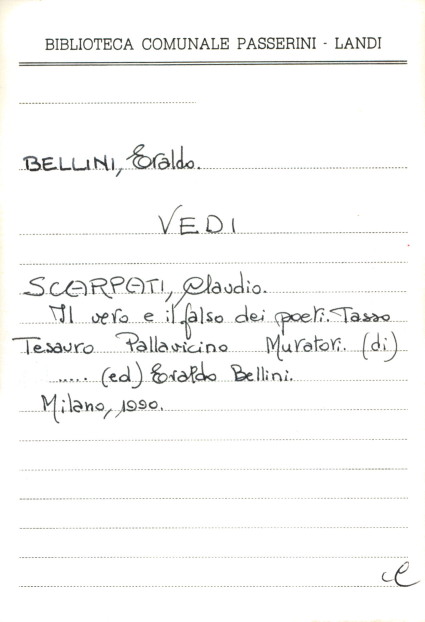 BIBLIOTECA COMUNALE PASSERINI - LANDI
BELLINI, Eraldo.
VEDI
SCARPATI, Claudio.
Il vero e il falso dei poeti. Tasso
Tesauro Pallavicino Muratori. (di)
..... (ed) Eraldo Bellini.
Milano, 1990.